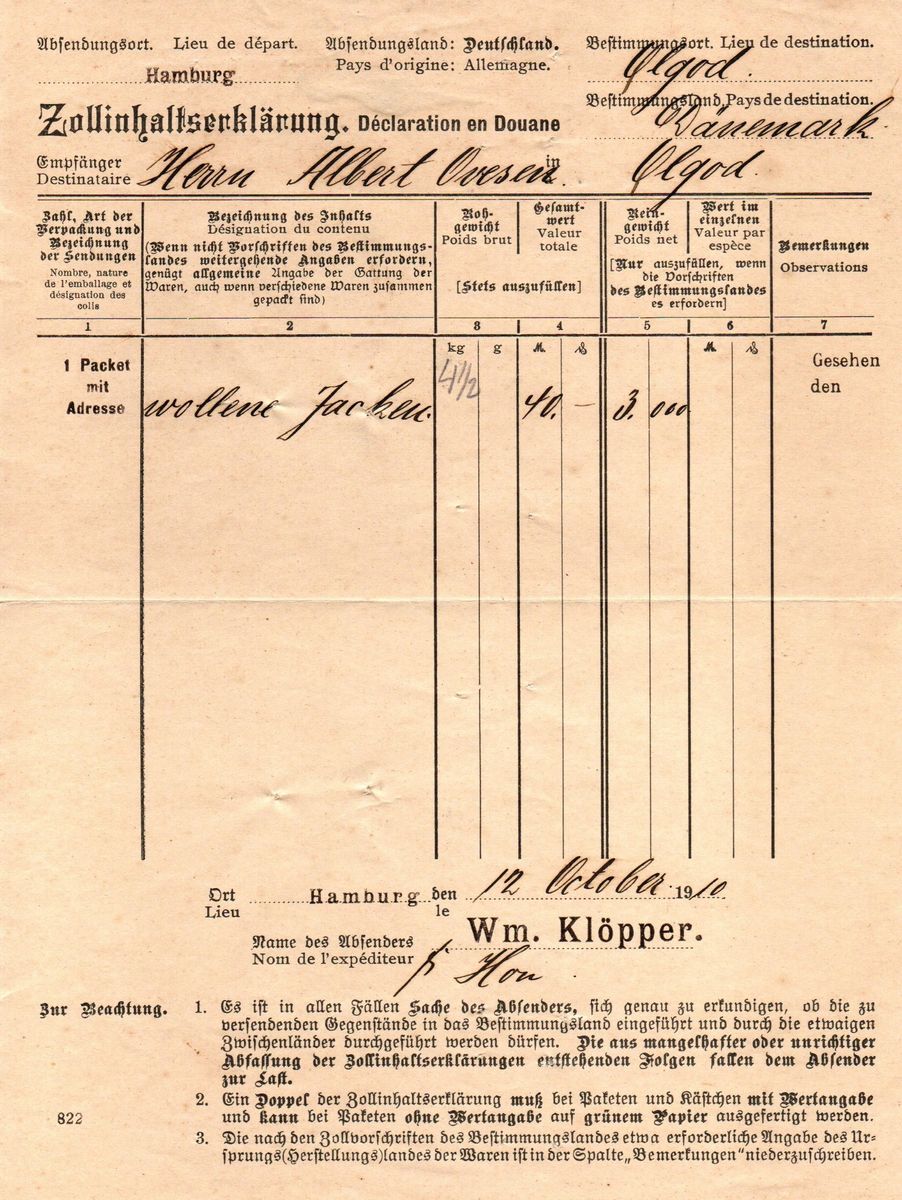 Absendungsort. Lieu de départ. Absendungsland: Deutschland. Bestimmungsort. Lieu de destination.
Hamburg Pays d'origine: Allemagne. Olgod.
Bestimmungsland. Pays de destination.
Zollinhaltserklärung. Déclaration en Douane Dänemark.
Empfänger
Destinataire Herrn Albert Ovesen. in Olgod.
Zahl, Art der Verpackung und Bezeichnung der Sendungen
Nombre, nature de l'emballage et désignation des colis
Bezeichnung des Inhalts
Désignation du contenu
(Wenn nicht Vorschriften des Bestimmungs-
landes weitergehende Angaben erfordern,
genügt allgemeine Angabe der Gattung der
Waren, auch wenn verschiedene Waren zusammen
gepackt sind)
Roh-
gewicht
Poids brut
Gesamt-
wert
Valeur
totale
[Stets auszufüllen]
Rein-
gewicht
Poids net
Wert im
einzelnen
Valeur par
espèce
[Nur auszufüllen, wenn
die Vorschriften
des Bestimmungslandes
es erfordern]
Bemerkungen
Observations
1 2 3 4 5 6 7
kg g M. ₰ M. ₰
1 Packet
mit
Adresse
wollene Jacken. 4½ 40. – 3. 000
Gesehen
den
Ort Hamburg den 12 October 1910
Lieu le
Name des Absenders Wm. Klöpper.
Nom de l'expéditeur
Zur Beachtung. 1. Es ist in allen Fällen Sache des Absenders, sich genau zu erkundigen, ob die zu
versendenden Gegenstände in das Bestimmungsland eingeführt und durch die etwaigen
Zwischenländer durchgeführt werden dürfen. Die aus mangelhafter oder unrichtiger
Abfassung der Zollinhaltserklärungen entstehenden Folgen fallen dem Absender
zur Last.
2. Ein Doppel der Zollinhaltserklärung muß bei Paketen und Kästchen mit Wertangabe
822 und kann bei Paketen ohne Wertangabe auf grünem Papier ausgefertigt werden.
3. Die nach den Zollvorschriften des Bestimmungslandes etwa erforderliche Angabe des Ur-
sprungs(Herstellungs)landes der Waren ist in der Spalte „Bemerkungen" niederzuschreiben.